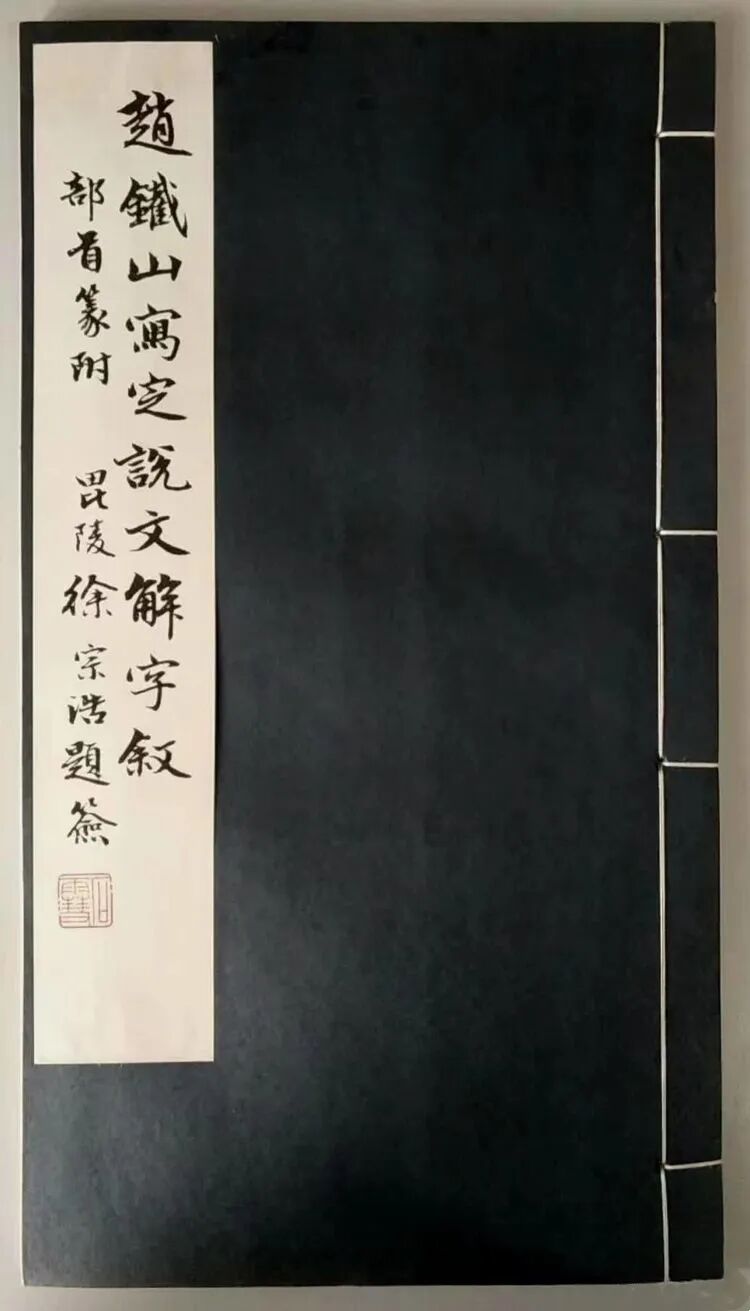 趙鐵山寫定說文解字敘
部首篆附 毘陵徐宗浩題簽
石雪